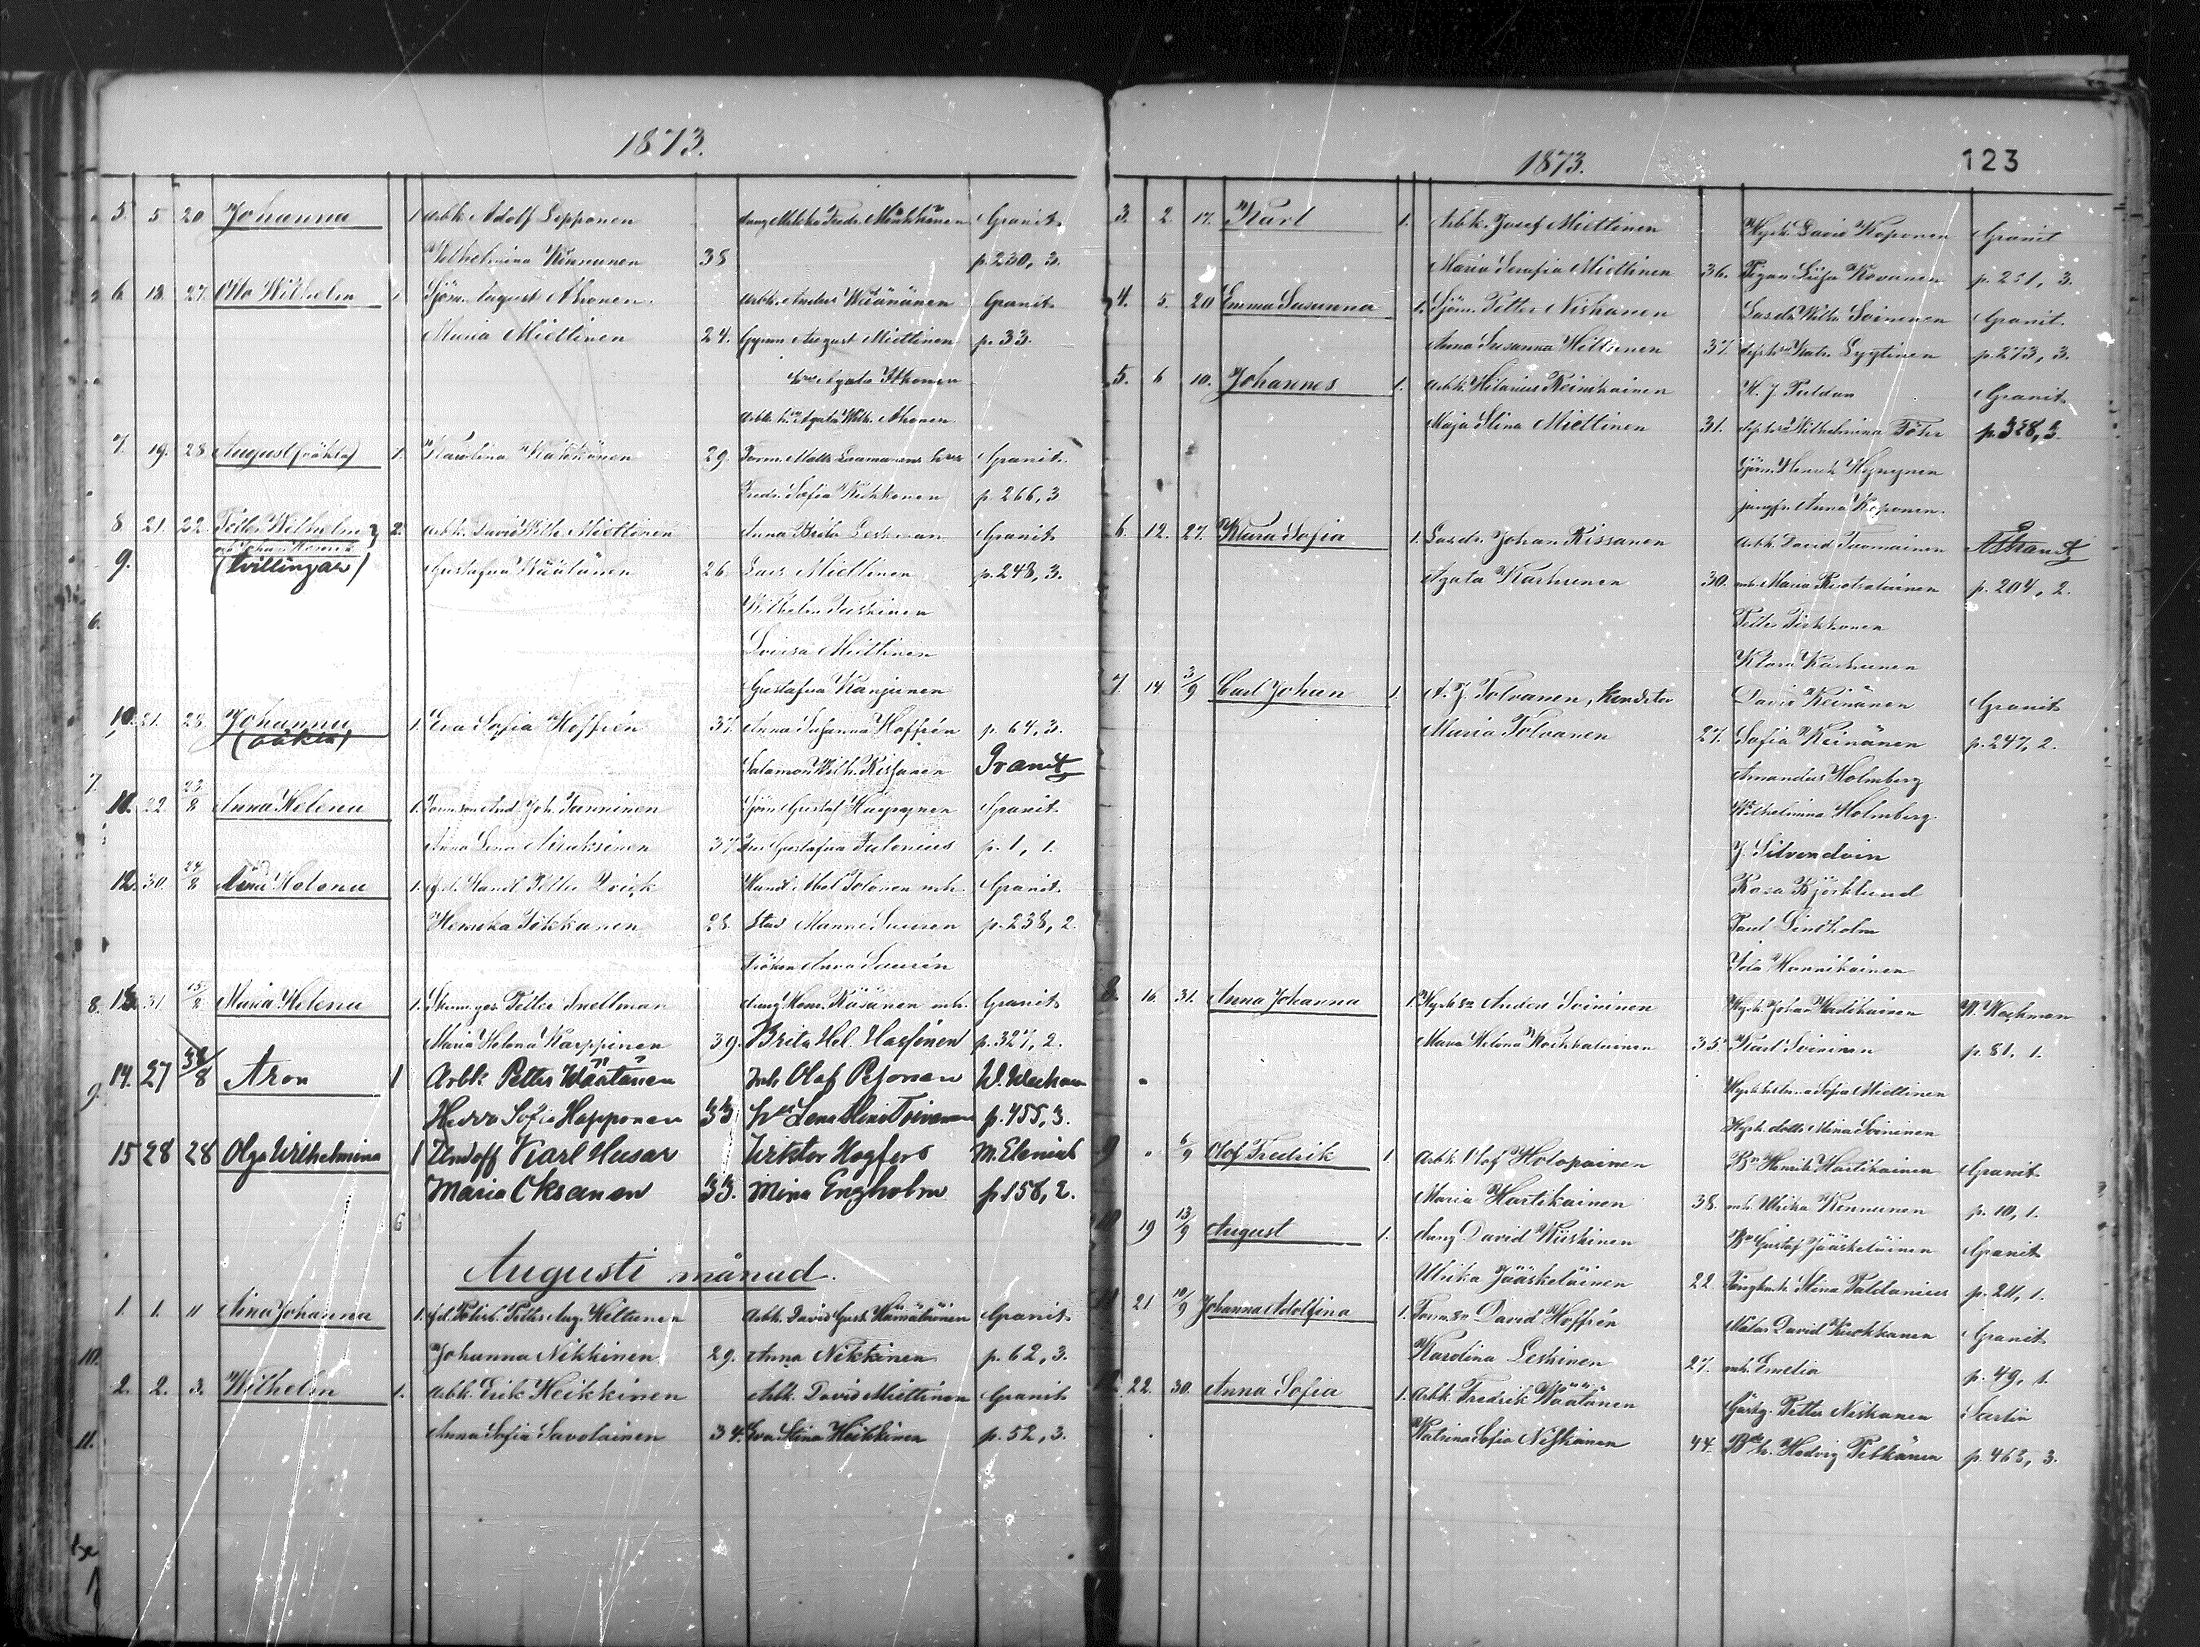 1873.
5. 5 20 Johanna 1 Arbk. Adolf Lepponen Granit
Wilhelmina Kinnunen 38 p. 230, 3.
6. 18. 27. Otto Wilhelm 1 Sjöm. August Ahonen Arbk. Anders Väänänen Granit
Maria Miettinen 24. Gymn August Miettinen p. 33.
Agata Ahonen
7. 19. 28 August (oäkta) 1. Karolina 29. Granit
Fredr. Sofia Kuhkonen p. 266, 3
8 21. 22. Petter Wilhelm 2. Arbk. David Wilh. Miettinen Anna Brita Leskinen Granit
9. och Johan Henrik (tvillingar) Gustafva Väätänen 26. Lars Miettinen p. 248, 3.
Wilhelm Tuskinen
Lovisa Miettinen
Gustafva Kanjunen
10. 21. 28. Johannes (oäkta) 1. Eva Sofia Hoffrén 37. Anna Susanna Hoffrén p. 64, 3.
Salamon Wilh. Rissanen Granit
11. 22. 23/8 Anna Helena 1. And. Joh. Tanninen Sjöm Gustaf Häyrynen Granit
Anna Lena Miuksinen 37. Gustafva Falenius p. 1, 1.
12. 30. 24/8 Anna Helena 1. Petter Qvick Abel Tolonen mh. Granit
Henrika Tikkanen 28. Manne Saurén p. 238, 2.
Fröken Anna Saurén
13. 31. 15/8 Maria Helena 1. Petter Snellman Räsänen mh. Granit
Maria Helena Karppinen 39. Brita Hel. Hassinen p. 327, 2.
14. 27 Aron 1 Arbk Petter Väätänen Inh Olaf Pesonen W. Wechman
Hedvi Sofia Happonen 33 Lena Stina Toivanen p. 455, 3.
15 28 28 Olga Wilhelmina 1 Undoff Karl Husar Viktor Hogfors M. Elenius
Maria Oksanen 33. Mina Engholm p. 158, 2.
6
Augusti månad.
1. 1. 11 Aina Johanna 1. Petter Aug. Hiltunen Arbk. David Gust. Hämäläinen Granit
Johanna Nikkinen 29. Anna Nikkinen p. 62, 3.
2. 2. 3. Wilhelm 1. Arbk. Erik Heikkinen Arbk. David Miettinen Granit
Anna Sofia Savolainen 34. Eva Stina Heikkinen p. 52, 3.
1873. 123
3. 2. 17. Karl 1. Arbk. Josef Miettinen Hyrk. David Koponen Granit
Maria Serafia Miettinen 36. Pigan Lisa Kovanen p. 251, 3.
4. 5. 20 Emma Susanna 1. Sjöm. Petter Niskanen Wilh. Soininen Granit
Anna Susanna Hiltunen 37. Lyytinen p. 273, 3.
5. 6 10. Johannes 1. Arbk. Hilarius Reinikainen K. J. Paldan Granit
Maja Stina Miettinen 31. Wilhelmina Föhr p. 328, 3.
Sjöm. Henrik Hyvynen
jungfr. Anna Koponen.
6. 12. 27. Klara Sofia 1. Johan Rissanen Arbk. David Tuomainen
Agata Karhunen 30. mh. Maria Ruotsalainen p. 204, 2.
Petter Tirkkonen
Klara Karhunen
7. 14 3/9 Carl Johan 1. A. J. Tolvanen, kanditor David Keinänen Granit
Maria Tolvanen 27. Sofia Keinänen p. 247, 2.
Amandus Holmberg
Wilhelmina Holmberg.
J. Silvendoin
Rosa Björklund
Paul Lindholm
Ida Hannikainen
8. 16. 31. Anna Johanna 1. Hyrk. sn Anders Soininen Hyrk. Johan Hartikainen W. Wechman
Maria Helena Korhkalainen 35. Karl Soininen p. 81, 1.
Sofia Miettinen
Hyrk. dottr Mina Soininen
9 " 6/9 Olof Fredrik 1 Arbk. Olof Holopainen Bn Henrik Hartikainen Granit
Maria Hartikainen 38. mh. Ulrika Kinnunen p. 10, 1.
10 19 13/9 August 1. David Kuskinen Bn Gustaf Jääskeläinen Granit
Ulrika Jääskeläinen 22. Stina Paldanius p. 211, 1.
11 21 10/9 Johanna Adolfina 1. David Hoffrén Målar. David Kuokkanen Granit
Karolina Leskinen 27. mh. Emelia p. 49, 1.
22. 30. Anna Sofia 1. Arbk. Fredrik Väätänen Petter Niskanen Sartin
Katrina Sofia Niskanen 44. Hedvig Pitkänen p. 463, 3.